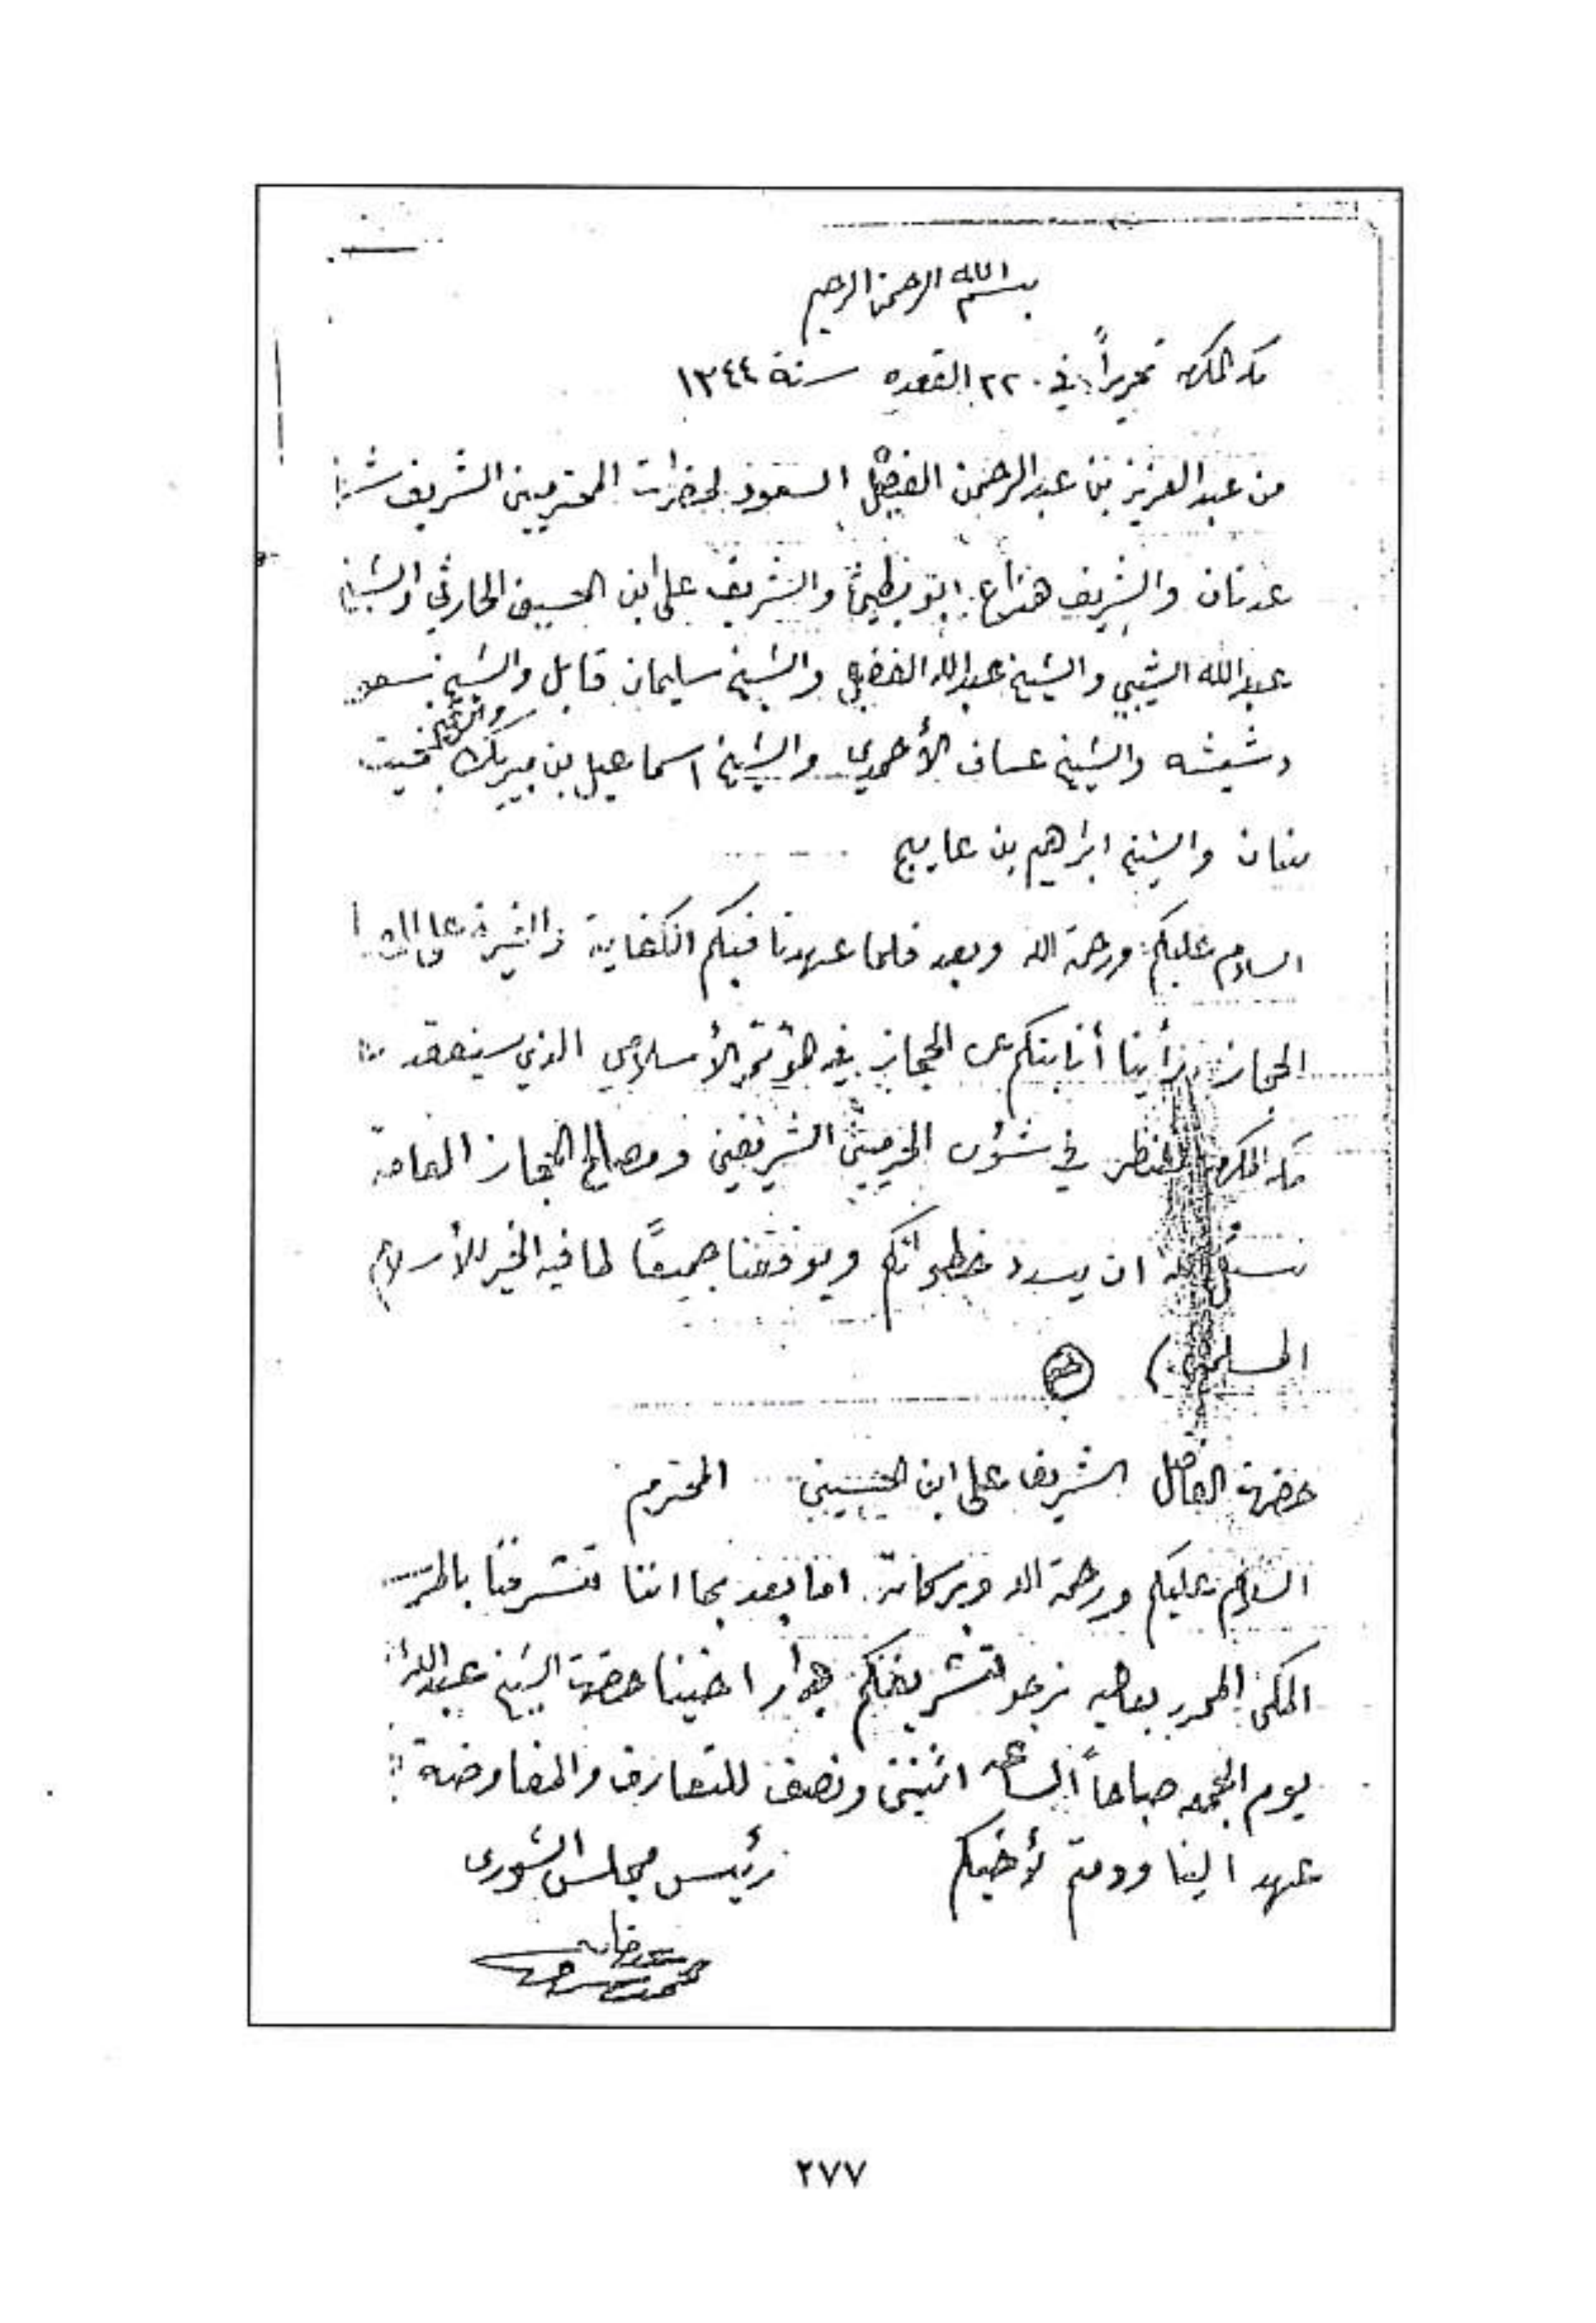 بسم الله الرحمن الرحيم
مكه المكرمه تحريراً في ٢٢ القعده سنة ١٣٤٤
من عبد العزيز بن عبد الرحمن الفيصل السعود لحضرات المحترمين الشريف
عدنان والشريف هزاع ابو بطين والشريف على ابن الحسين الحارثي والشيخ
عبد الله الشيبي والشيخ عبد الله الفضل والشيخ سليمان قابل والشيخ سعود
دشيشه والشيخ عساف الأحمدي والشيخ اسماعيل بن مبيريك
والشيخ ابراهيم بن عايج
السلام عليكم ورحمة الله وبعد فلما عهدنا فيكم الكفاية والغيرة على
الحجاز رأينا أنابتكم عن الحجاز في المؤتمر الأسلامي الذي سينعقد
مكه المكرمه للنظر في شؤون الحرمين الشريفين ومصالح الحجاز العامة
نسئل الله ان يسدد خطواتكم ويوفقنا جميعاً لما فيه الخير للأسلام
المسلمين
حضرة الفاضل الشريف على ابن الحسين المحترم
السلام عليكم ورحمة الله وبركاته اما بعد بما اننا تشرفنا
الملكي المحرر بعاليه نرجو تشريفكم بدار اخينا حضرة الشيخ عبد الله
يوم الجمعه صباحاً الساعه اثنين ونصف للتعارف والمفاوضة
عهد الينا ودمتم لأخيكم رئيس مجلس الشورى
محمد
٢٧٧